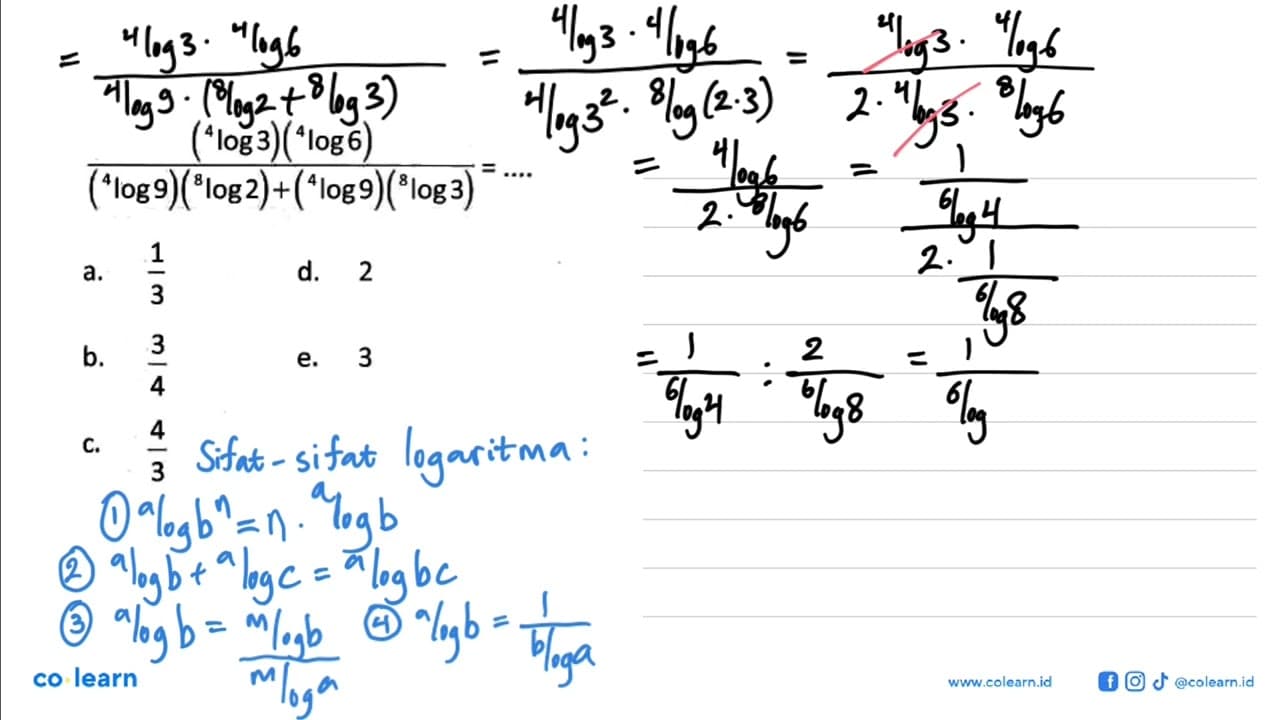 = ⁴log3 · ⁴log6 / ⁴log9 · (⁸log2 + ⁸log3) = ⁴log3 · ⁴log6 / ⁴log3² · ⁸log(2·3) = ⁴log3 · ⁴log6 / 2 · ⁴log3 · ⁸log6
(⁴log3)(⁴log6) / (⁴log9)(⁸log2)+(⁴log9)(⁸log3) = ....
= ⁴log6 / 2 · ⁸log6 = 1 / ⁶log4 / 2 · 1 / ⁶log8
a. 1/3 d. 2
b. 3/4 e. 3
= 1 / ⁶log4 : 2 / ⁶log8 = 1 / ⁶log
c. 4/3
Sifat-sifat logaritma:
① ᵃlog bⁿ = n · ᵃlog b
② ᵃlog b + ᵃlog c = ᵃlog bc
③ ᵃlog b = ᵐlog b / ᵐlog a ④ ᵃlog b = 1 / ᵇlog a
co learn
www.colearn.id @colearn.id